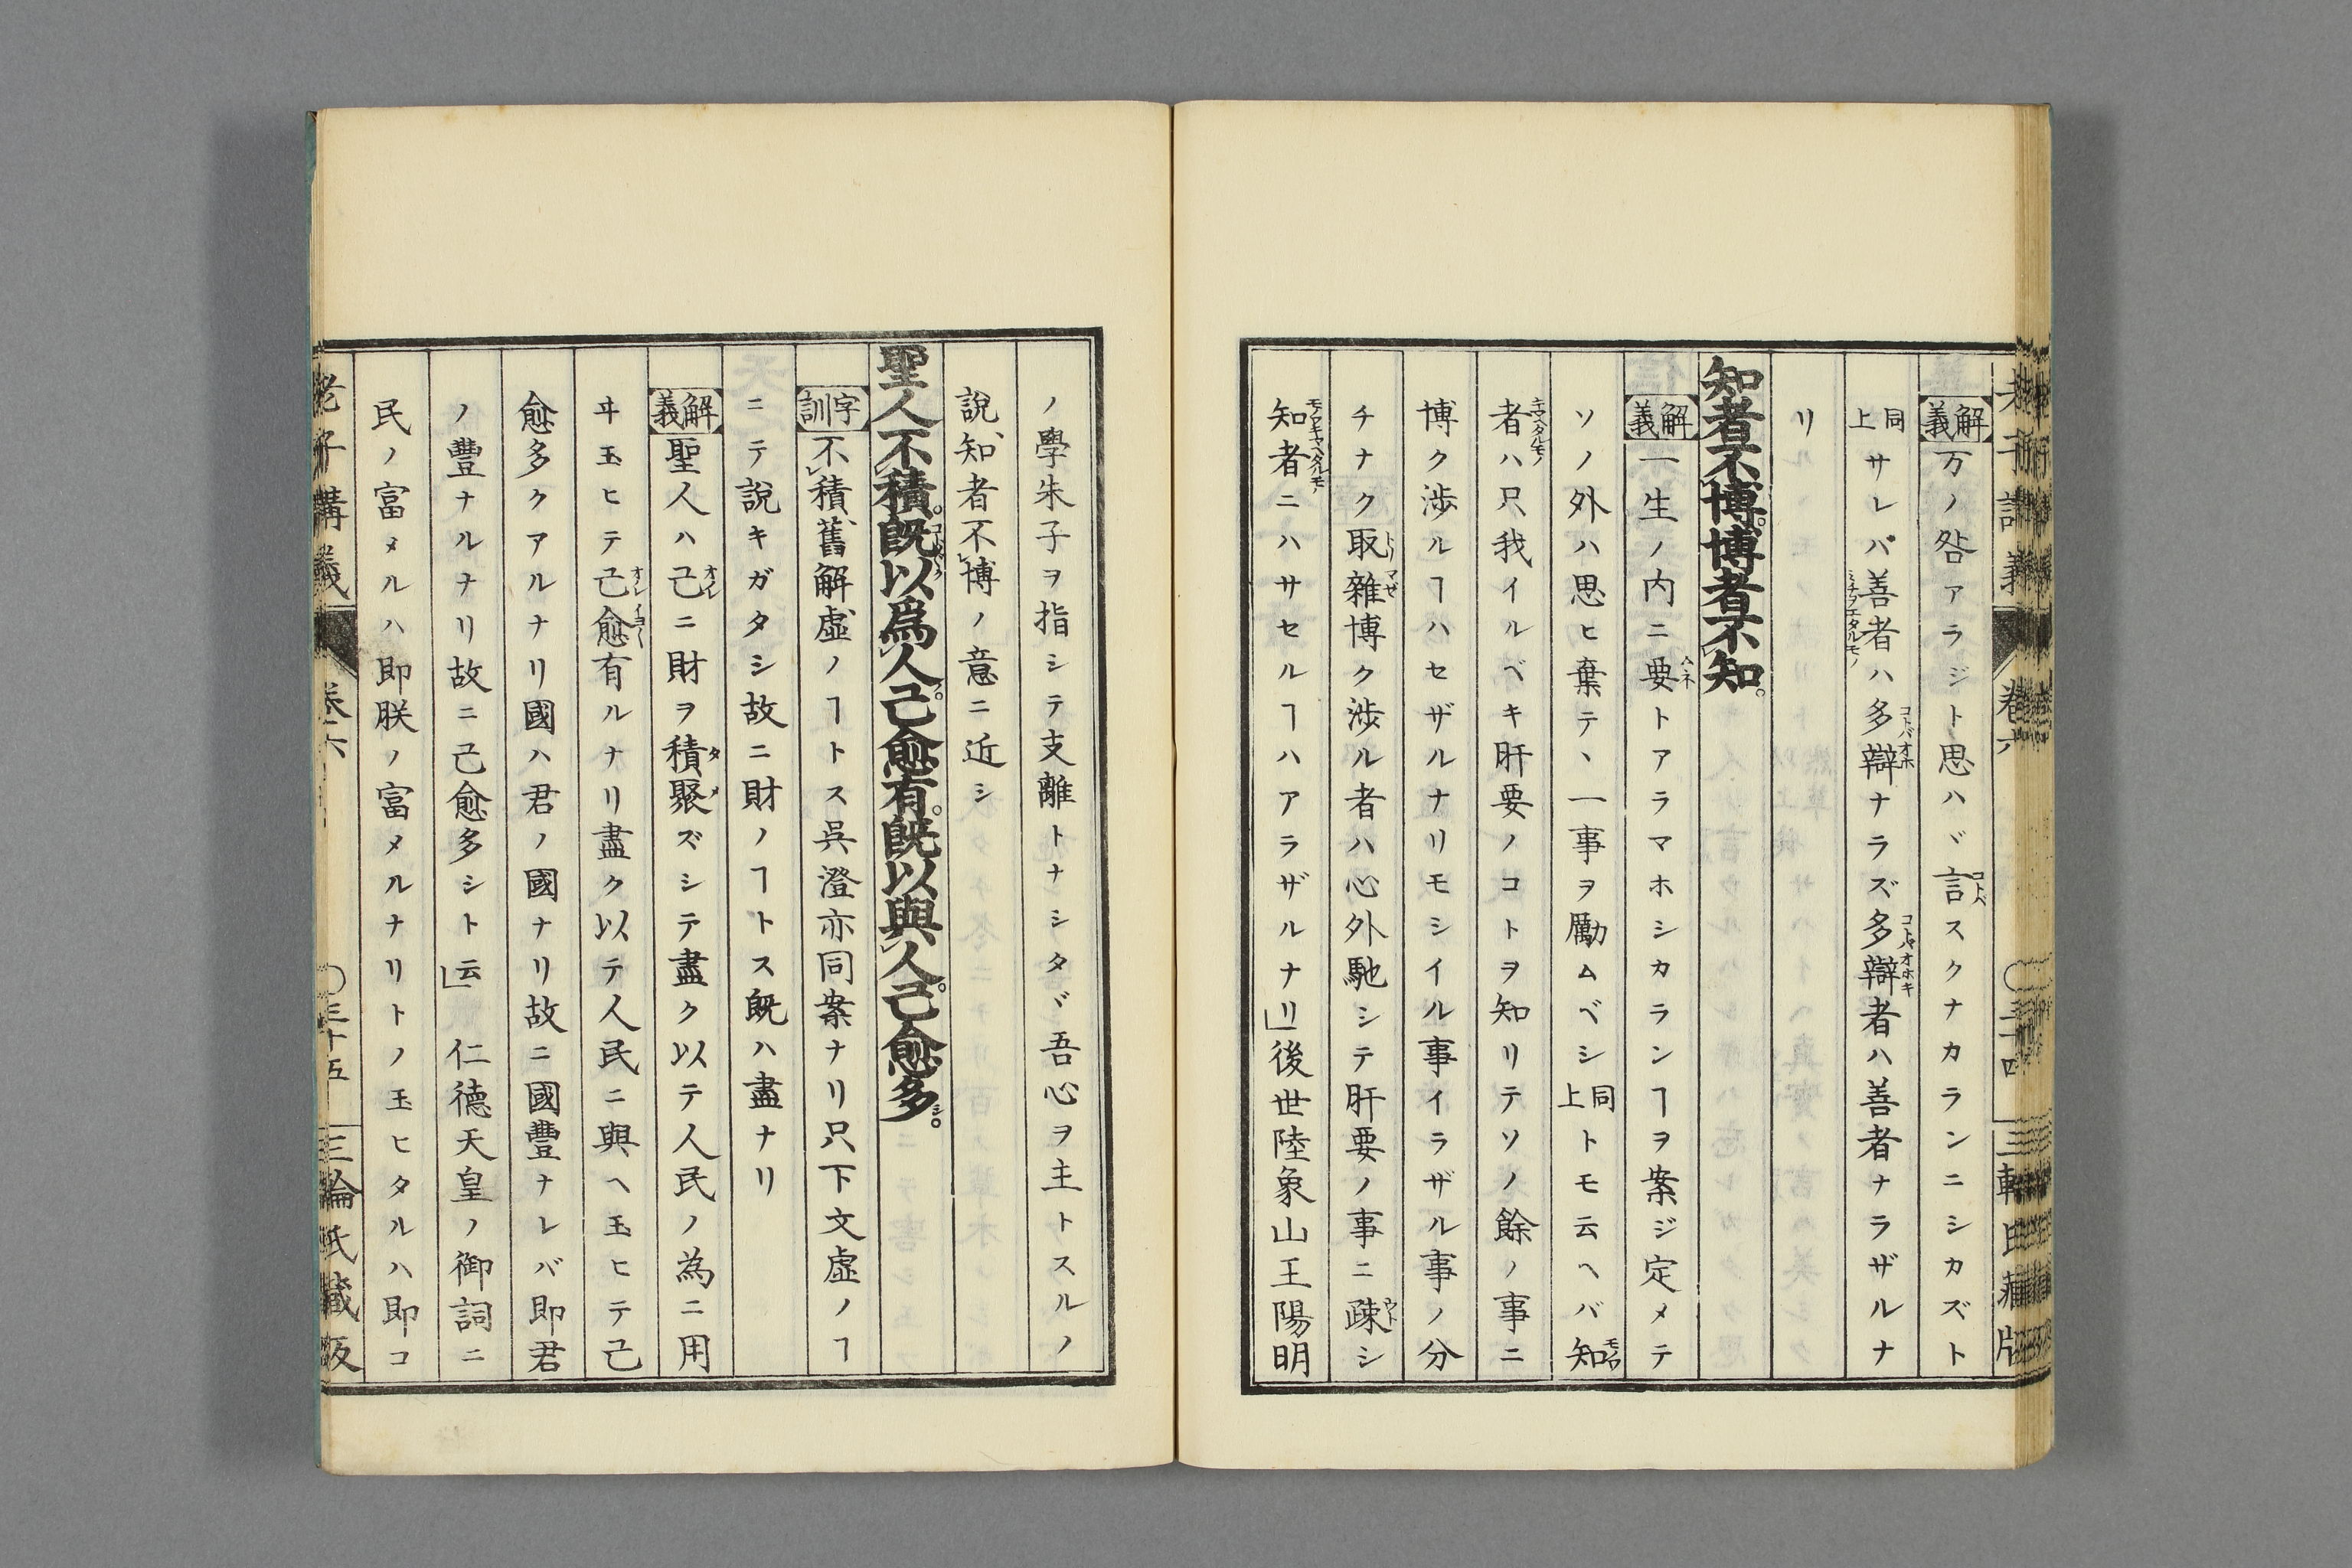 解義 万ノ咎アラジト思ハヾ言スクナカランニシカズト
同上サレバ善者ハ多辯ナラズ多辯者ハ善者ナラザルナ
リ
知者不博。博者不知。
解義 一生ノ内ニ要トアラマホシカランヿヲ案ジ定メテ
ソノ外ハ思ヒ棄テヽ一事ヲ勵ムベシ同上トモ云ヘバ知
者ハ只我イルベキ肝要ノコトヲ知リテソノ餘ノ事ニ
博ク渉ルヿハセザルナリモシイル事イラザル事ノ分
チナク取雜博ク渉ル者ハ心外馳シテ肝要ノ事ニ疎シ
知者ニハサセルヿハアラザルナリ」後世陸象山王陽明
ノ學朱子ヲ指シテ支離トナシタヾ吾心ヲ主トスルノ
說知者不博ノ意ニ近シ
聖人不積。既以爲人。己愈有。既以與人。己愈多。
字訓 不積舊解虛ノヿトス呉澄亦同案ナリ只下文虛ノヿ
ニテ說キガタシ故ニ財ノヿトス既ハ盡ナリ
解義 聖人ハ己ニ財ヲ積聚ズシテ盡ク以テ人民ノ為ニ用
ヰ玉ヒテ己愈有ルナリ盡ク以テ人民ニ與ヘ玉ヒテ己
愈多クアルナリ國ハ君ノ國ナリ故ニ國豐ナレバ即君
ノ豐ナルナリ故ニ己愈多シト云」 仁德天皇ノ御詞ニ
民ノ富メルハ即朕ノ富メルナリトノ玉ヒタルハ即コ
老子講義 卷六 〇三十五 三輪氏藏版